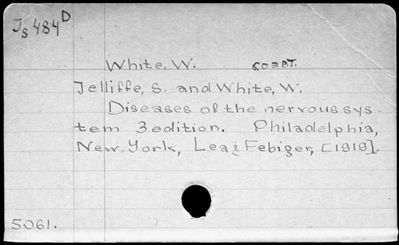 Js 484 D
White, W. соавт.
Jelliffe, S. and White, W.
Diseases of the nervous sys-
tem 3edition. Philadelphia,
New York, Lea & Febiger, [1919].
5061.